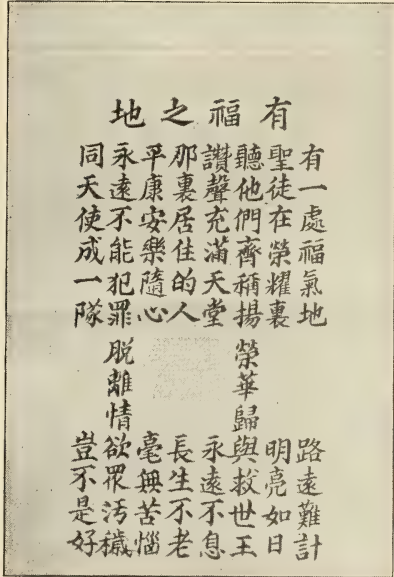 有福之地
有一處福氣地 路遠難計
聖徒在榮耀裏 明亮如日
聽他們齊稱揚 榮華歸與捄世王
讚聲充滿天堂 永遠不息
那裏居住的人 長生不老
平康安樂隨心 毫無苦惱
永遠不能犯罪 脫離情欲眾汚穢
同天使成一隊 豈不是好